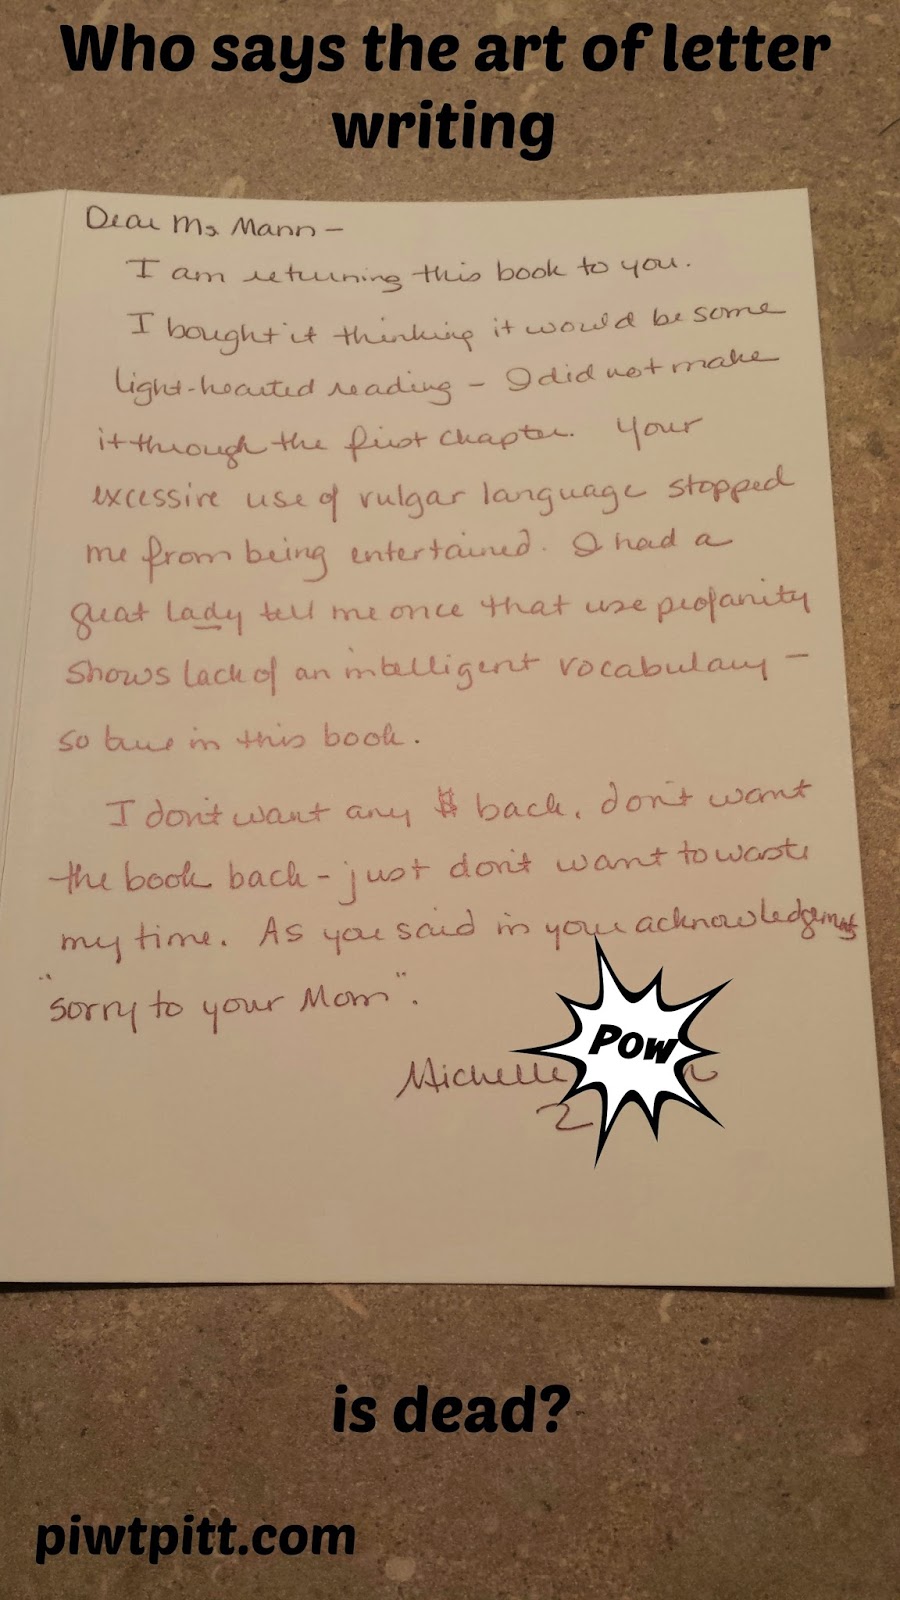 Who says the art of letter
writing
Dear Ms Mann -
I am returning this book to you.
I bought it thinking it would be some
light-hearted reading - I did not make
it through the first chapter. Your
excessive use of vulgar language stopped
me from being entertained. I had a
great lady tell me once that use profanity
shows lack of an intelligent vocabulary -
so true in this book.
I don't want any $ back, don't want
the book back - just don't want to waste
my time. As you said in your acknowledgements
"sorry to your Mom".
POW
Michelle
2
is dead?
piwtpitt.com